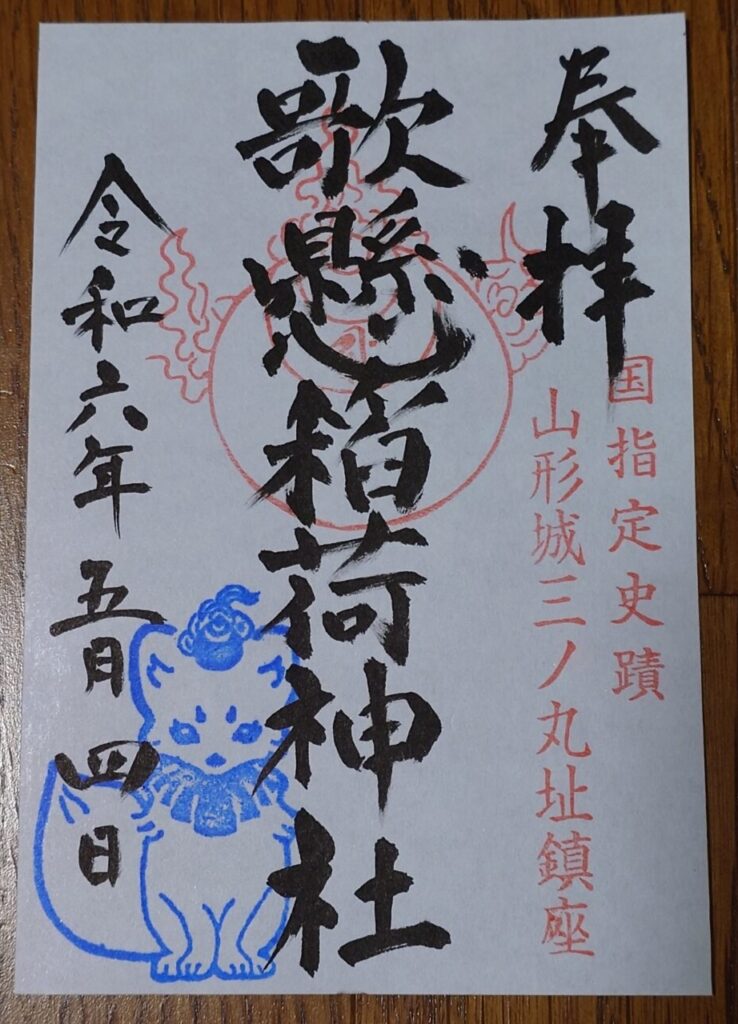 奉拝
国指定史蹟
山形城三ノ丸址鎮座
歌懸稲荷神社
令和六年五月四日